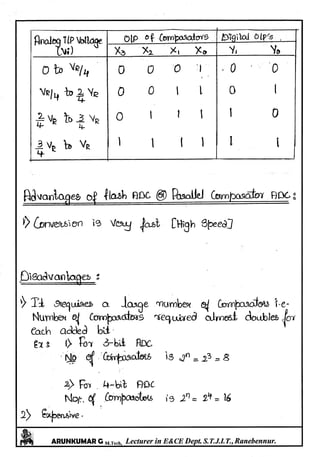 Analog I/P Voltage (Vi) | O/P of Comparators | Digital O/P's
X3 X2 X1 X0 | Y1 Y0
0 to VR/4 | 0 0 0 1 | 0 0
VR/4 to 2/4 VR | 0 0 1 1 | 0 1
2/4 VR to 3/4 VR | 0 1 1 1 | 1 0
3/4 VR to VR | 1 1 1 1 | 1 1
Advantages of flash ADC (or) Parallel Comparator ADC :
1) Conversion is very fast [High Speed]
Disadvantages :
1) It requires a large number of Comparators i.e-
Number of Comparators required almost doubles for
each added bit.
Ex : 1) For 3-bit ADC
No of Comparators is 2^n = 2^3 = 8
2) For 4-bit ADC
No. of Comparators is 2^n = 2^4 = 16
2) Expensive.
ARUNKUMAR G M.Tech, Lecturer in E&CE Dept. S.T.J.I.T., Ranebennur.